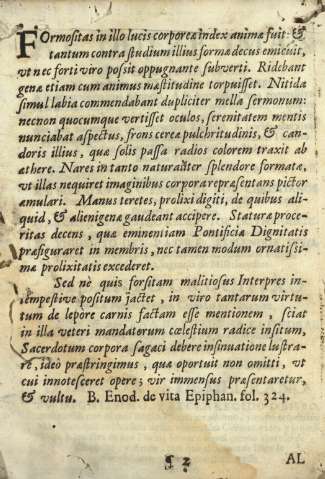 FOrmositas in illo lucis corporeæ index animæ fuit: &
tantum contra studium illius formæ decus emicuit,
vt nec forti viro possit oppugnante subverti. Ridebant
genæ etiam cum animus mæstitudine torpuisset. Nitida
simul labia commendabant dupliciter mella sermonum:
necnon quocumque vertisset oculos, serenitatem mentis
nunciabat aspectus, frons cereæ pulchritudinis, & can-
doris illius, quæ solis passa radios colorem traxit ab
æthere. Nares in tanto naturaliter splendore formatæ,
vt illas nequiret imaginibus corpora repræsentans pictor
æmulari. Manus teretes, prolixi digiti, de quibus ali-
quid, & alienigenæ gaudeant accipere. Staturæ proce-
ritas decens, quæ eminentiam Pontificiæ Dignitatis
præfiguraret in membris, nec tamen modum ornatissi-
mæ prolixitatis excederet.
Sed nè quis forsitam malitiosus Interpres in-
tempestive positum jactet, in viro tantarum virtu-
tum de lepore carnis factam esse mentionem, sciat
in illa veteri mandatorum cœlestium radice insitum,
Sacerdotum corpora sagaci debere insinuatione lustra-
re, ideò præstringimus, quæ oportuit non omitti, vt
cui innotesceret opere; vir immensus præsentaretur,
& vultu. B. Enod. de vita Epiphan. fol. 324.
¶ 2
AL